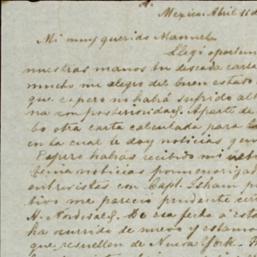 Mexico Abril 11 d
Mi muy querido Manuel
Llegó oportun
nuestras manos tu deseada carta
mucho me alegro del buen estado
que espero no habrá sufrido alt
na con posterioridad. Aparte de
bo otra carta calculada para
en la cual te doy noticias gen
Espero habrás recibido mi
tenia noticias pormenorizad
entrevistas con Capt. Isham
tivo me pareció prudente
H. De esa fecha á esta
ha ocurrido de nuevo y estamos
que resuellen de Nueva York.